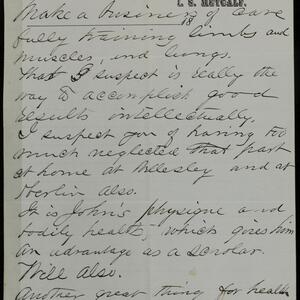 I. S. METCALF.
Make a business of care
18
fully training limbs and
muscles, and lungs.
That I suspect is really the
way to accomplish good
results intellectually.
I suspect you of having too
much neglected that part
at home at Wellesley and at
Berlin also.
It is John's physique and
bodily health, which gives him
an advantage as a scholar.
Will also.
Another great thing for health